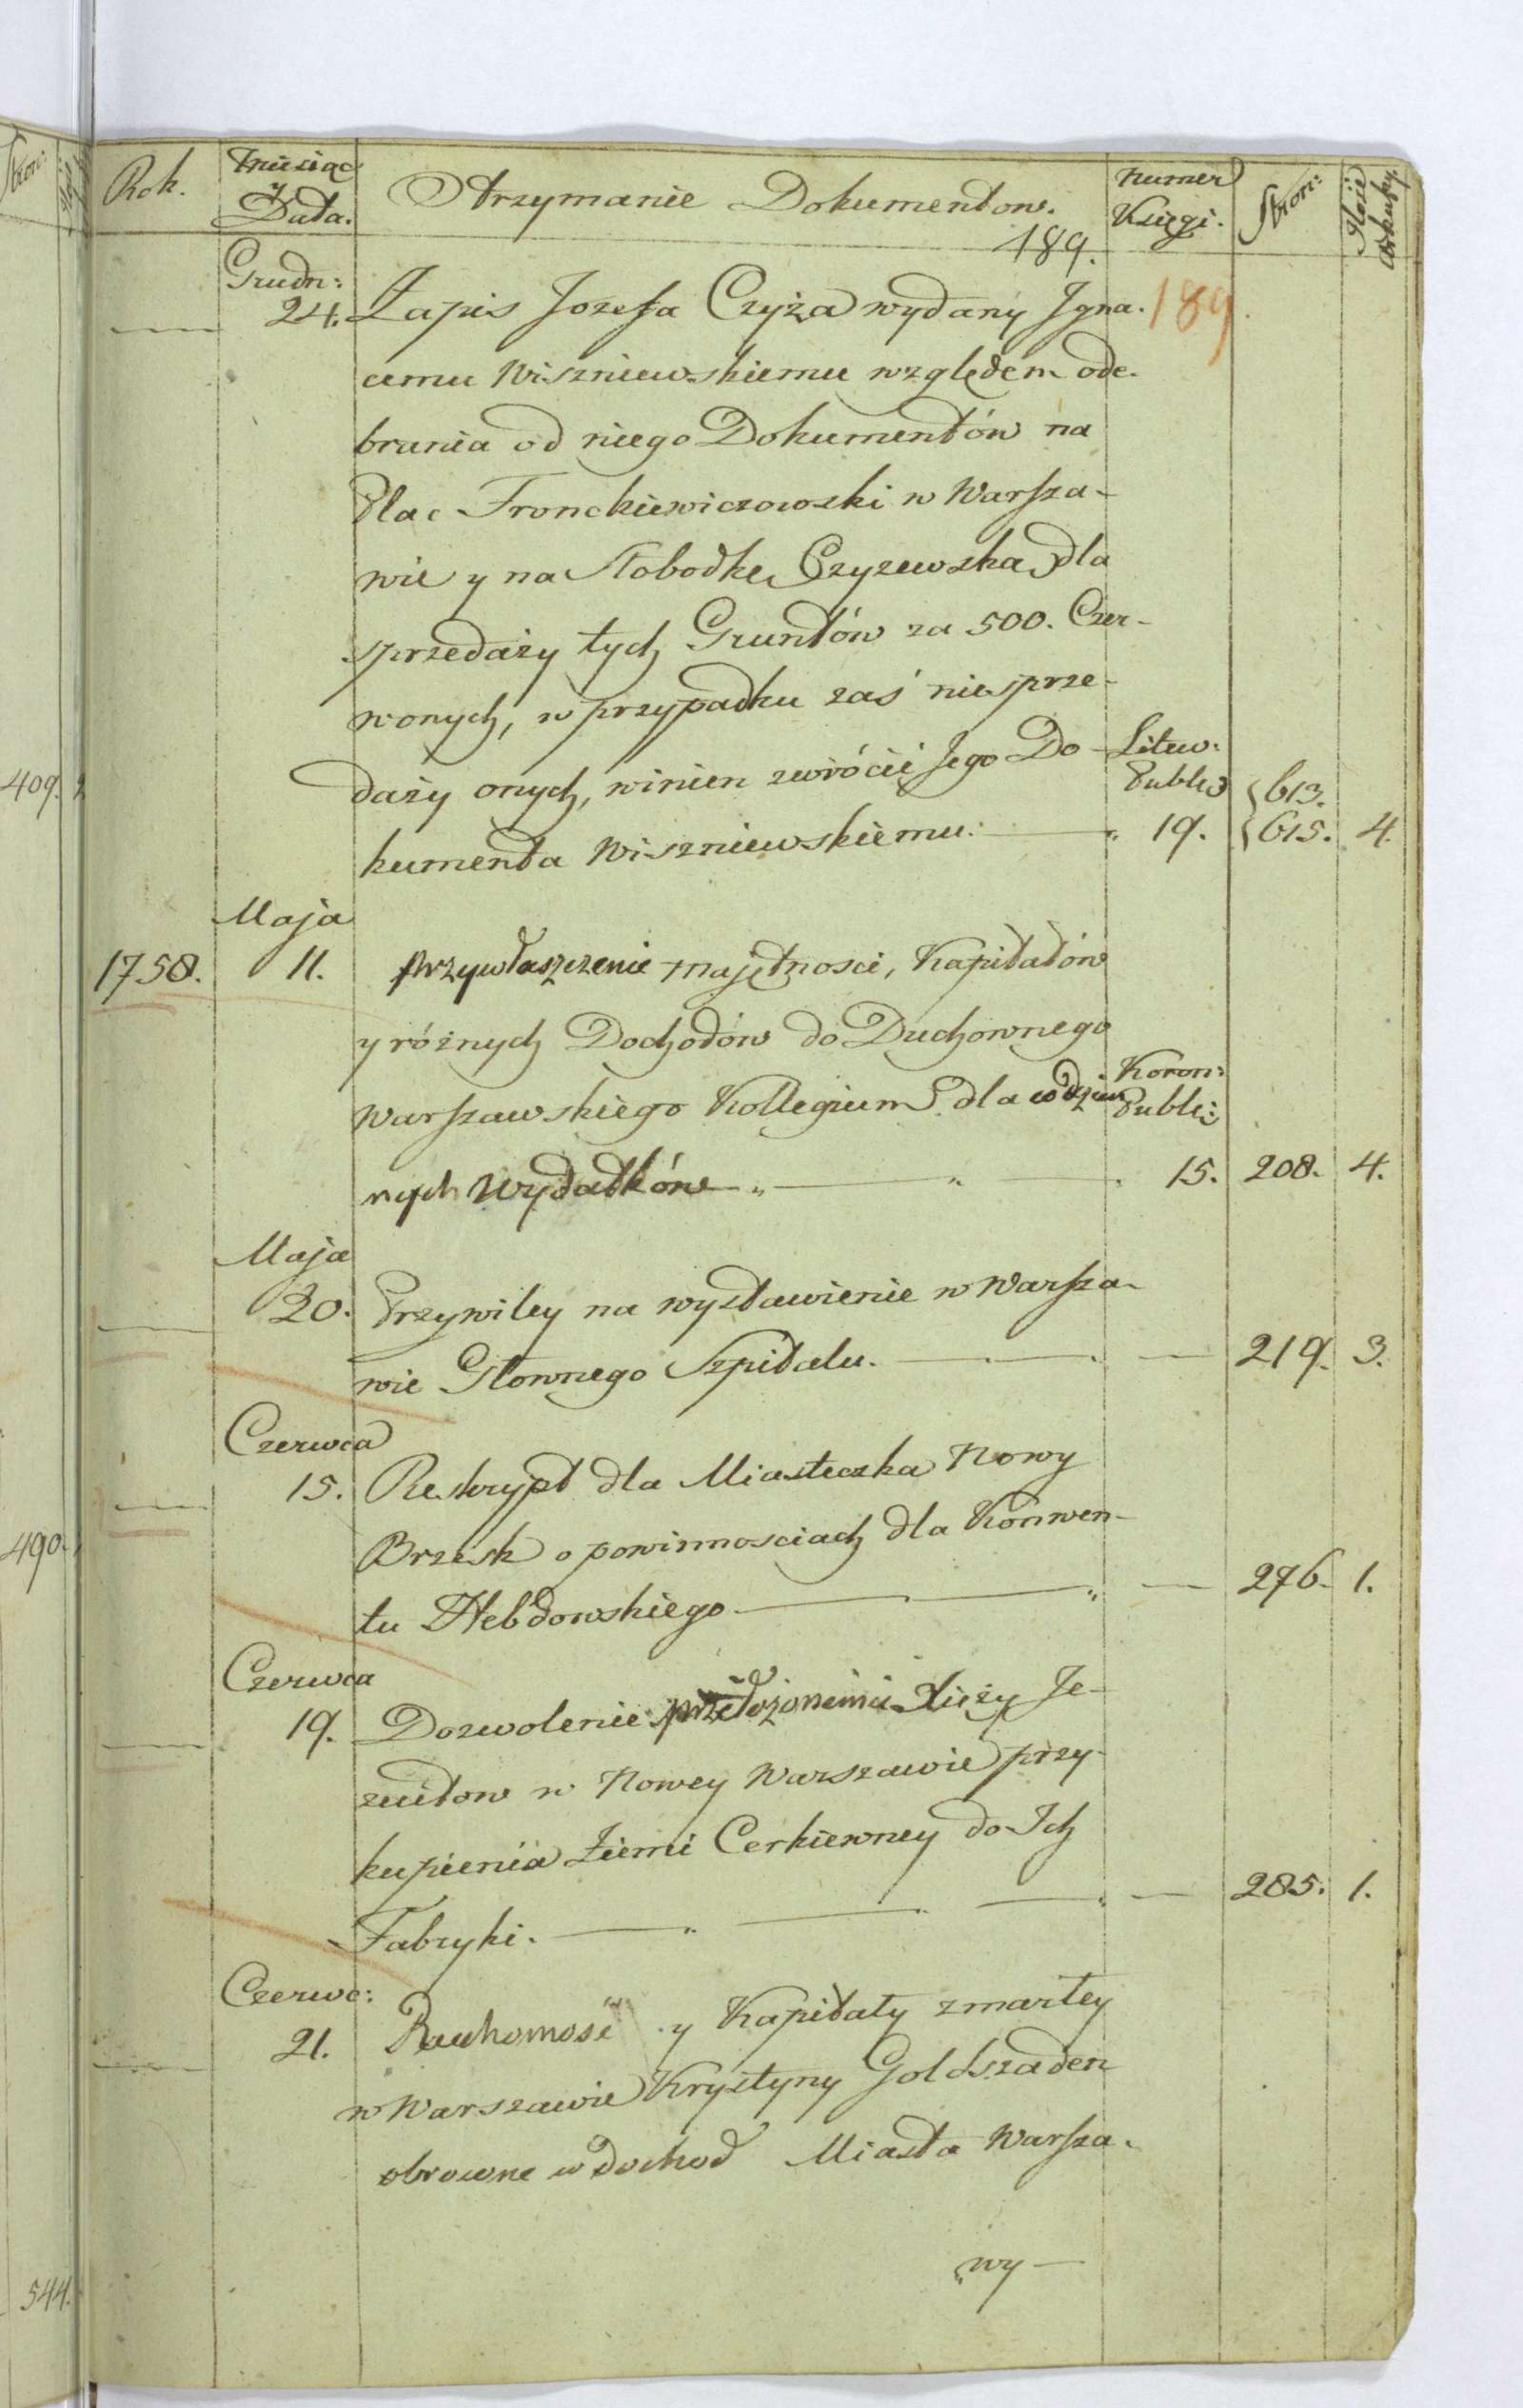 Rok. Miesiąc y Data. Otrzymanie Dokumentow. Numer Księgi. Stron: Ilość Arkuszy
189.
Grudn:
24. Zapis Jozefa Czyża wydany Jgna- 189
cemu Wiszniewskiemu względem ode-
brania od niego Dokumentów na
Plac Fronckiewiczowski w Warsza-
wie y na Słobodkę Czyzewską dla
sprzedaży tych Gruntów za 500. Czer-
wonych, w przypadku zaś niesprze-
daży onych, winien zwrócić Jego Do- Litew: Public
kumenta Wiszniewskiemu. 19. 613. 615. 4.
Maja
1758. 11. przywłaszczenie majętnosci, Kapitałów
y różnych Dochodów do Duchownego
Warszawskiego Kollegium dla codzien Koron: Publi:
nych wydatków 15. 208. 4.
Maja
20. Przywiley na wystawienie w Warsza-
wie Głownego Szpitalu. 219. 3.
Czerwca
15. Reskrypt dla Miasteczka Nowy
Brzesk o powinnosciach dla Konwen-
tu Hebdowskiego 276. 1.
Czerwca
19. Dozwolenie przełożonemu Xięży Je-
zuitow w Nowey Warszawie przy-
kupienia Ziemi Cerkiewney do Jch
Fabryki. 285. 1.
Czerwc:
21. Ruchomość y Kapitały zmarłey
w Warszawie Krystyny Goldszaden
obrocone w dochod Miasta Warsza-
wy
409.
490.
544.